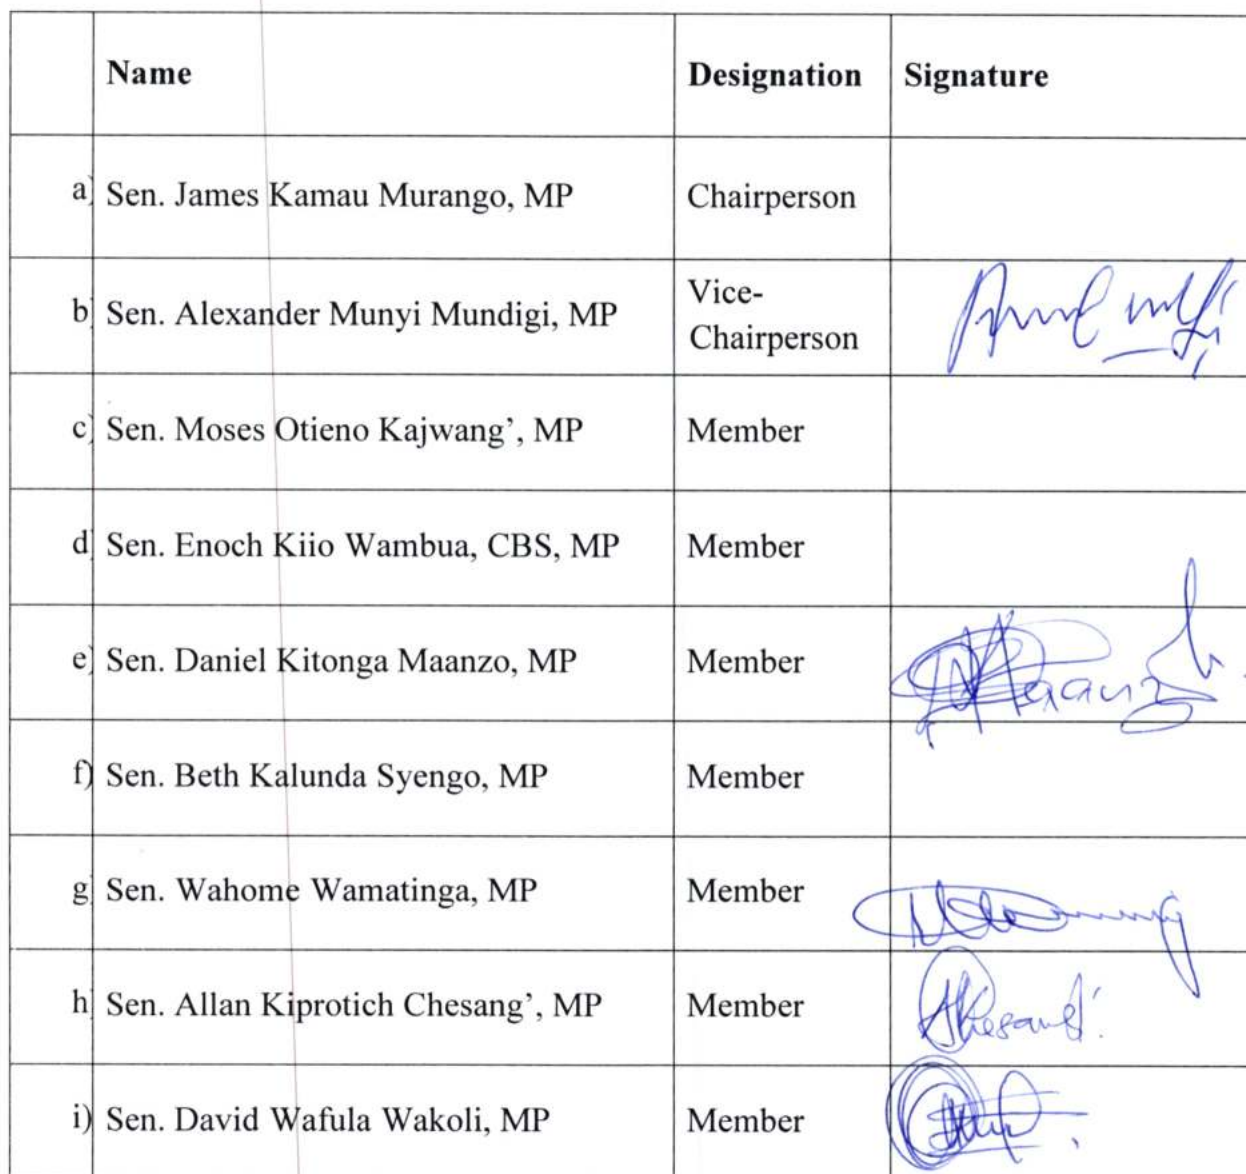 Name Designation Signature
a) Sen. James Kamau Murango, MP Chairperson
b) Sen. Alexander Munyi Mundigi, MP Vice-
Chairperson
c) Sen. Moses Otieno Kajwang’, MP Member
d) Sen. Enoch Kiio Wambua, CBS, MP Member
e) Sen. Daniel Kitonga Maanzo, MP Member Maanzo
f) Sen. Beth Kalunda Syengo, MP Member
g) Sen. Wahome Wamatinga, MP Member
h) Sen. Allan Kiprotich Chesang’, MP Member
i) Sen. David Wafula Wakoli, MP Member